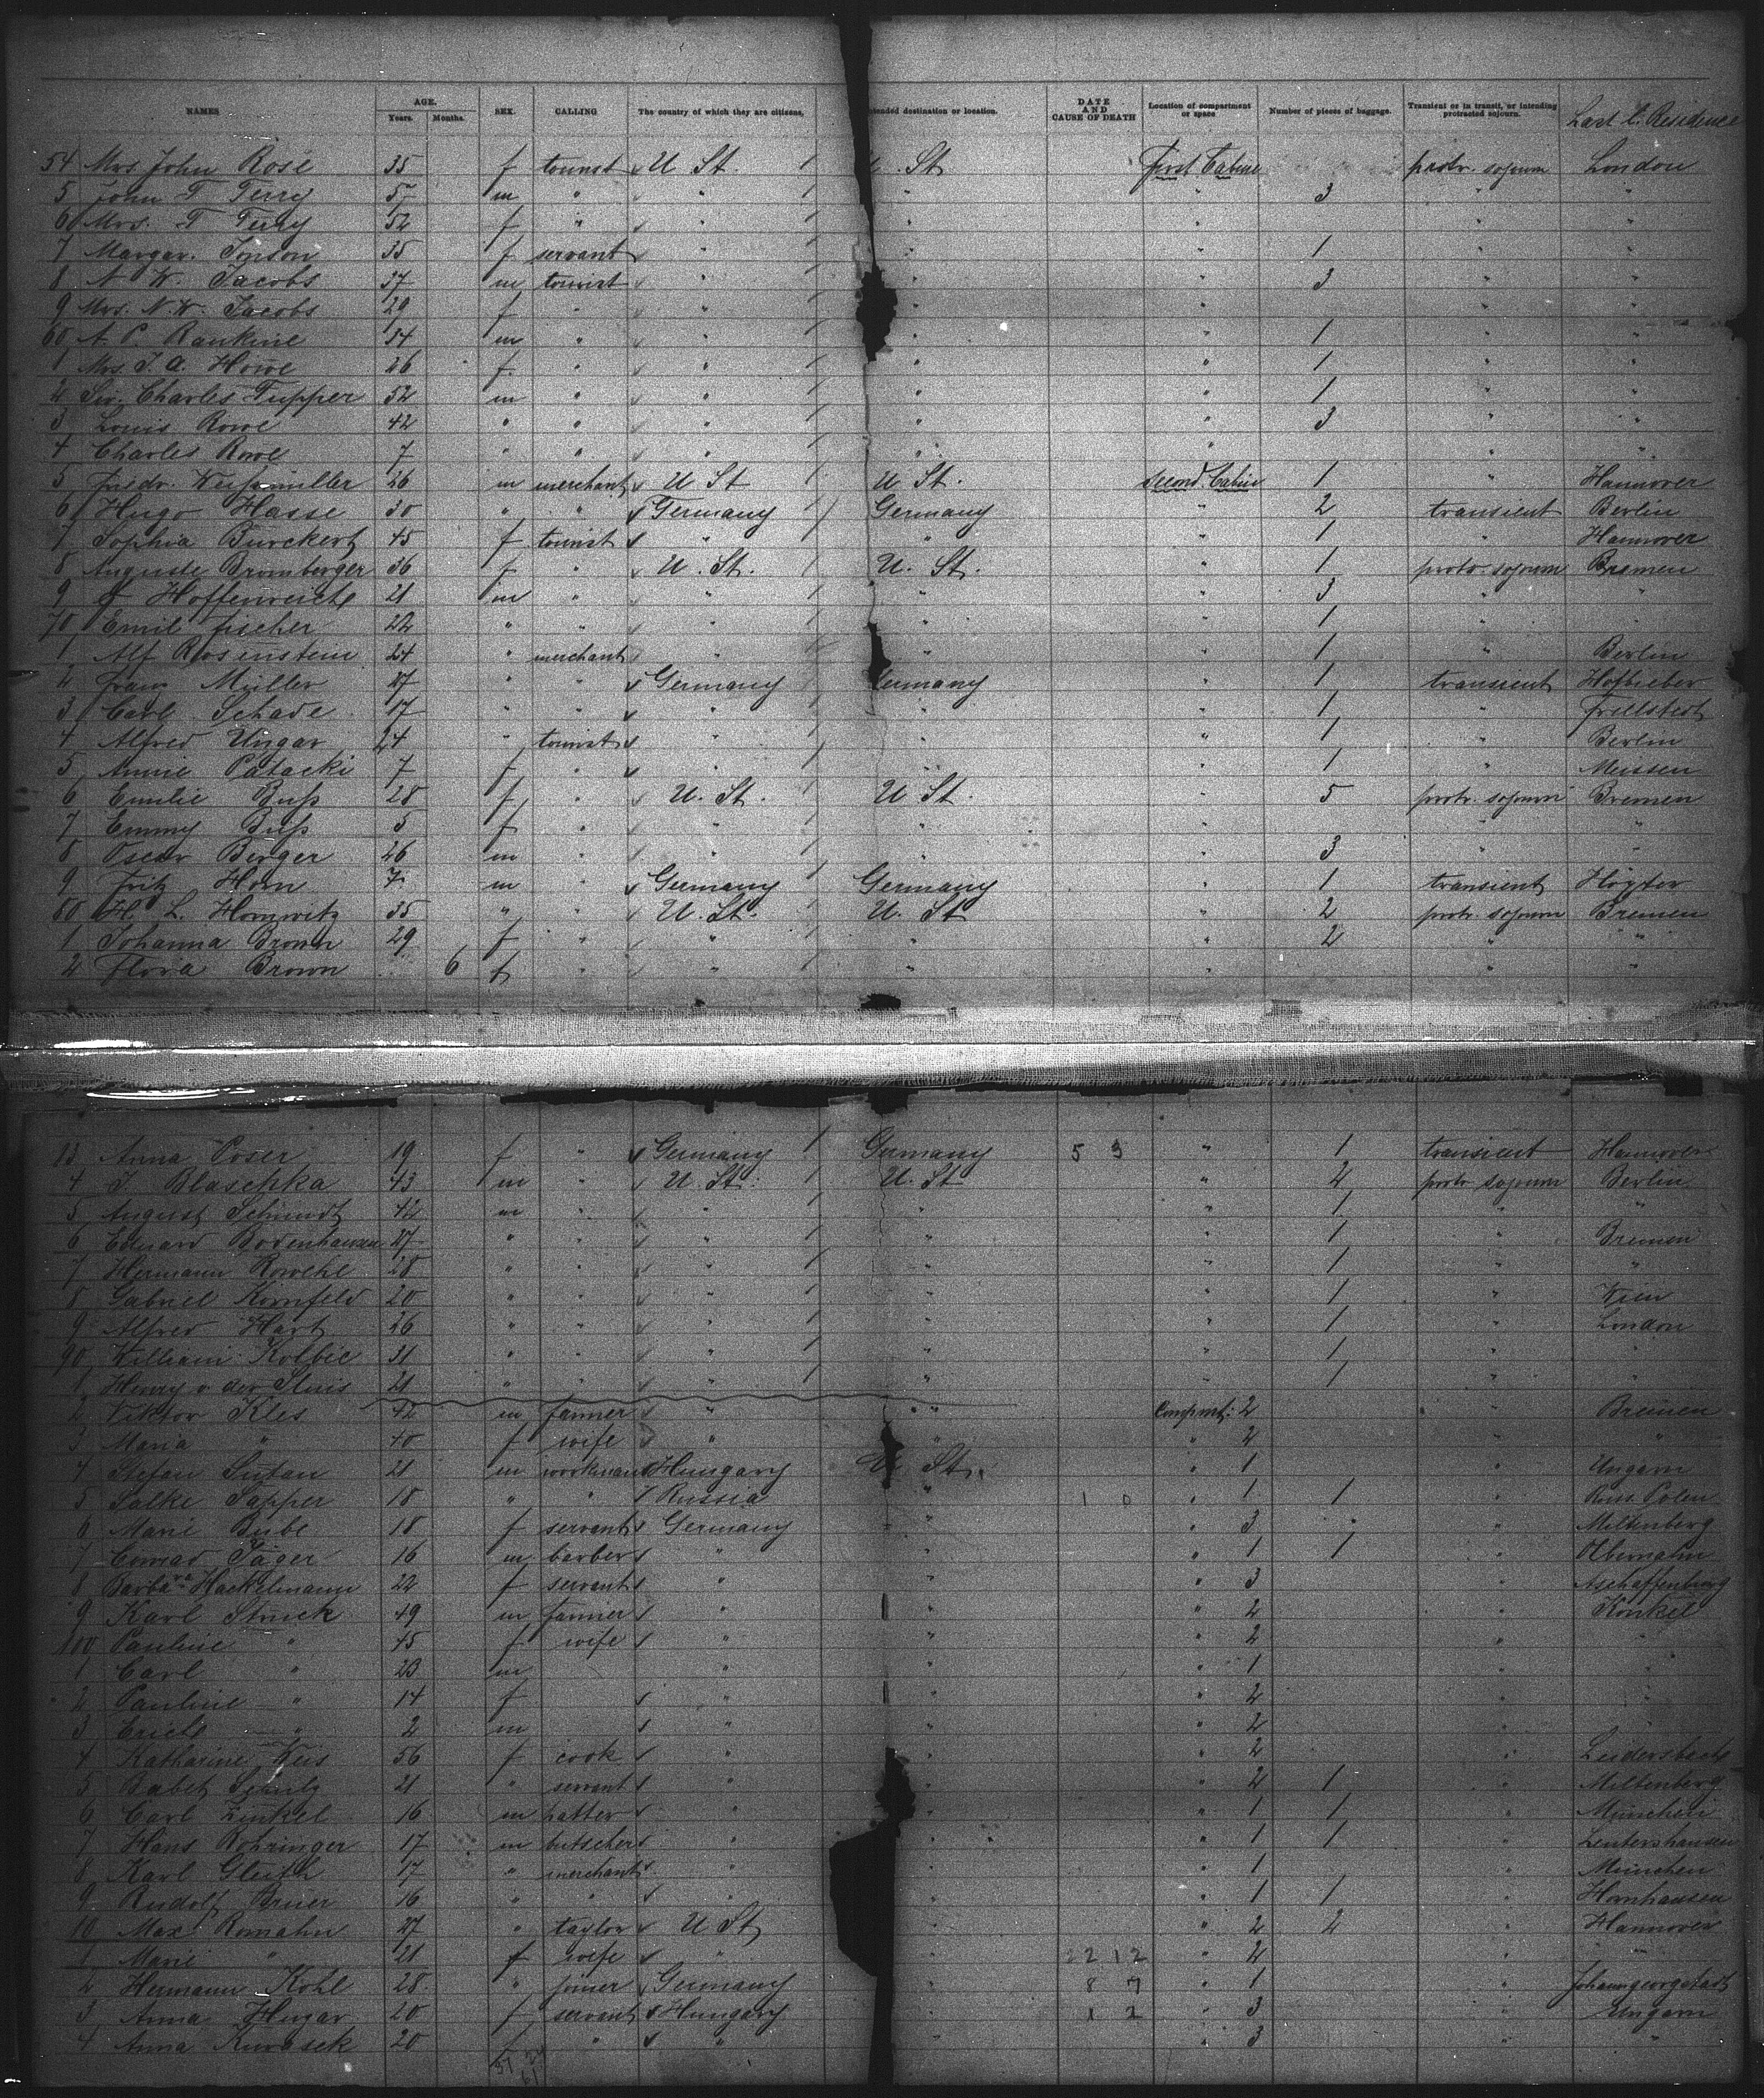 NAMES AGE. Years. Months. SEX. CALLING The country of which they are citizens. ntended destination or location. DATE AND CAUSE OF DEATH Location of compartment or space Number of pieces of baggage. Transient or in transit, or intending protracted sojourn. Last l. Residence
54 Mrs John Rose 35 f tourist U St. St. First Cabine protr. sojourn London
5 John T Terry 57 m " " " " 3 " "
6 Mrs. T Terry 52 f " " " " " "
7 Margar. Jonson 35 f servant " " " 1 " "
8 N W. Jacobs 37 m tourist " " " 3 " "
9 Mrs. N. W. Jacobs 29 f " " " " " "
60 A. P. Rankine 34 m " " " " 1 " "
1 Mrs. J. A. Howe 26 f. " " " " 1 " "
2 Sir. Charles Tupper 52 m " " " " 1 " "
3 Louis Rowe 42 " " " " " 3 " "
4 Charles Rowe 7 " " " " " " "
5 Friedr. Weissmiller 26 m merchant U St U St. Second Cabine 1 " Hannover
6 Hugo Hasse 30 " " Germany Germany " 2 transient Berlin
7 Sophia Burckert 45 f tourist " " " 1 " Hannover
8 Auguste Bromberger 36 f " U. St. U. St. " 1 protr. sojourn Bremen
9 Hoffenreich 21 m " " " " 3 " "
70 Emil Fischer 22 " " " " " 1 " "
1 Alf Rosenstein 24 " merchant " " " 1 " Berlin
2 Franz Müller 27 " " Germany Germany " 1 transient Hofbieber
3 Carl Schade 17 " " " " " 1 " Frellstedt
4 Alfred Ungar 24 " tourist " " " 1 " Berlin
5 Annie Patacki 7 f " " " " 1 " Meissen
6 Emilie Buß 28 f " U. St. U St. " 5 protr. sojourn Bremen
7 Emmy Buß 5 f " " " " " "
8 Oscar Berger 26 m " " " " 3 " "
9 Fritz Horn 7 m " Germany Germany " 1 transient Höxter
80 H. L. Horrwitz 35 " " U. St. U. St " 2 protr. sojourn Bremen
1 Johanna Brown 29 f " " " " 2 " "
2 Flora Brown 6 f " " " " " "
83 Anna Poser 19 f " Germany Germany 5 3 " 1 transient Hannover
4 J Blaschka 43 m " U. St. U. St " 2 protr sojourn Berlin
5 August Schmidt 42 m " " " " 1 " "
6 Eduard Bodenhausen 27 " " " " " 1 " Bremen
7 Hermann Rowehl 28 " " " " " 1 " "
8 Gabriel Kornfeld 20 " " " " " 1 " Wien
9 Alfred Hart 26 " " " " " 1 " London
90 William Kolbic 31 " " " " " 1 " "
1 Henry v der Sluis 21 " " " " " 1 " "
2 Viktor Kles 42 m farmer " " Compart: 2 " Bremen
3 Maria " 40 f wife " " 2 " "
4 Stefan Sutan 21 m workman Hungary U St. " 1 " Ungarn
5 Salke Sapper 18 " " Russia " 1 0 " 1 1 " Russ. Polen
6 Marie Bube 18 f servant Germany " " 3 " " Miltenberg
7 Conrad Jäger 16 m barber " " " 1 1 " Obernahn
8 Barbara Hackelmann 22 f servant " " " 3 " Aschaffenburg
9 Karl Struck 49 m farmer " " " 2 " Konkel
100 Pauline " 45 f wife " " " 2 " "
1 Carl " 23 m " " " 1 " "
2 Pauline " 14 f " " " 2 " "
3 Erich " 2 m " " " 2 " "
4 Katharine Weis 56 f cook " " " 2 " Leidersbach
5 Babet Schulz 21 " servant " " " 2 1 " Miltenberg
6 Carl Zinkel 16 m hatter " " " 1 1 " München
7 Hans Rohringer 17 m butscher " " " 1 1 " Leutershausen
8 Karl Gleith 17 " merchant " " " 1 " München
9 Rudolf Bruer 16 " " " " " 1 1 " Hornhausen
10 Max Romahn 27 " taylor U St " " 2 2 " Hannover
1 Marie " 21 f wife " " 22 12 " 2 " "
2 Hermann Kohl 28 " joiner Germany " 8 7 " 1 " Johanngeorgstadt
3 Anna Hugar 20 f servant Hungary " 1 2 " 3 " Ungarn
4 Anna Kuvasek 20 f " " " 3 " "